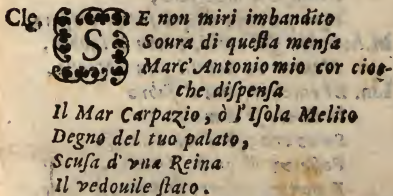 Cle. SE non miri imbandito
Soura di questa mensa
Marc' Antonio mio cor cioe-
che dispensa
Il Mar Carpazio, ò l'Isola Melito
Degno del tuo palato,
Scusa d' vna Reina
Il vedouile stato.